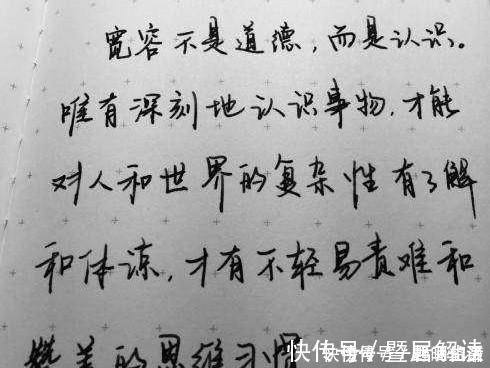 宽容不是道德，而是认识。
唯有深刻地认识事物，才能
对人和世界的复杂性有了解
和体谅，才有不轻易责难和
赞美的思维习惯
快传号／